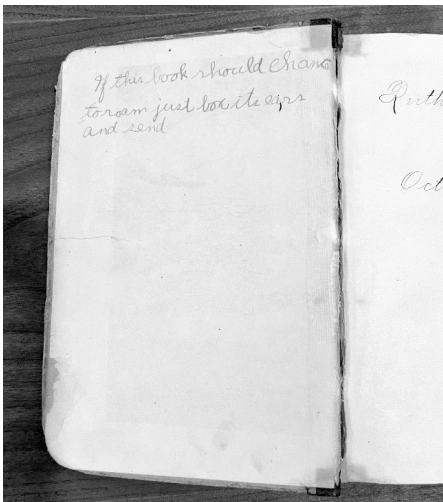 If this book should chance
to roam just box its ears
and send
Ruth
Oct